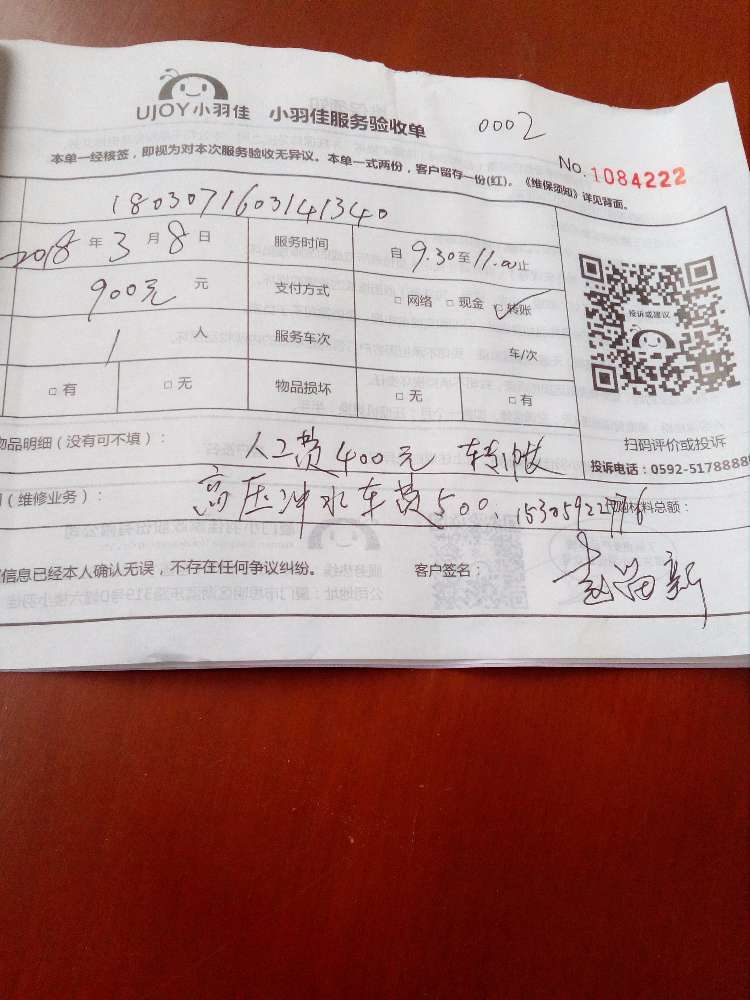 UJOY小羽佳 小羽佳服务验收单 0002
本单一经核签，即视为对本次服务验收无异议。本单一式两份，客户留存一份(红)。《维保须知》详见背面。
No.1084222
1803071603141340
2018 年 3 月 8 日 服务时间 自 9.30 至 11.00 止
900元 元 支付方式 □ 网络 □ 现金 ☑ 转账
1 人 服务车次 车/次
□ 有 □ 无 物品损坏 □ 无 □ 有
投诉或建议
扫码评价或投诉
投诉电话：0592-5178888
物品明细（没有可不填）： 人工费400元 转帐
（维修业务）： 高压冲水车费500. 15305922776 购材料总额：
信息已经本人确认无误，不存在任何争议纠纷。 客户签名：